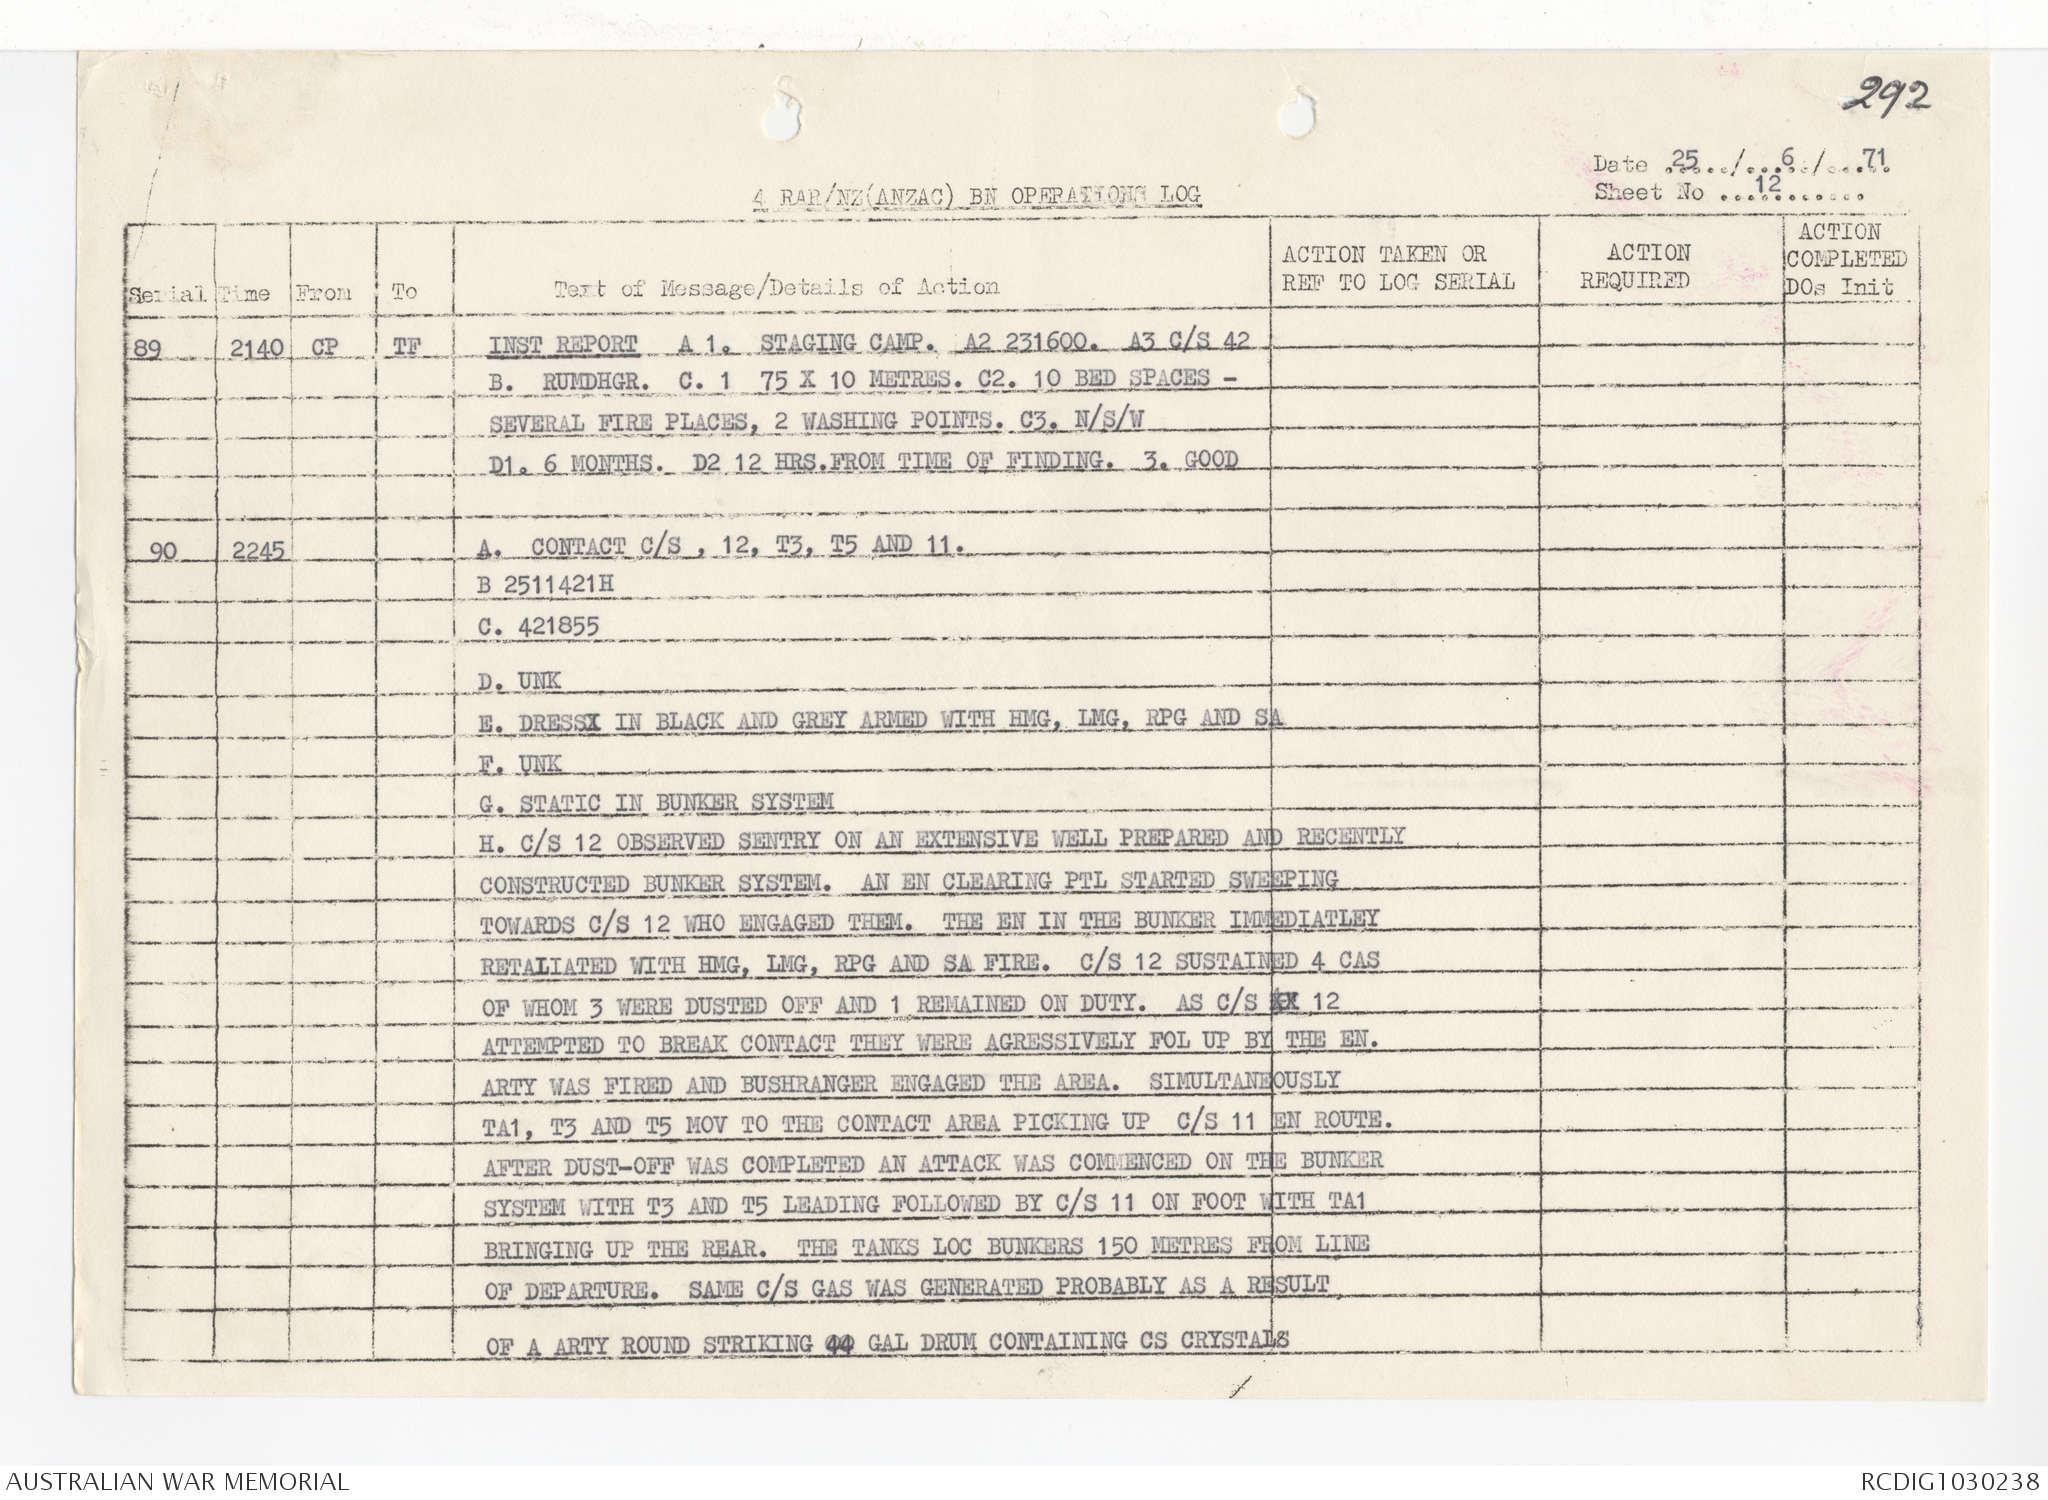 292
Date 25 / 6 / 71
Sheet No 12
4 RAR/NZ(ANZAC) BN OPERATIONS LOG
Serial Time From To Text of Message/Details of Action ACTION TAKEN OR REF TO LOG SERIAL ACTION REQUIRED ACTION COMPLETED DOs Init
89 2140 CP TF INST REPORT A 1. STAGING CAMP. A2 231600. A3 C/S 42
B. RUMDHGR. C. 1 75 X 10 METRES. C2. 10 BED SPACES -
SEVERAL FIRE PLACES, 2 WASHING POINTS. C3. N/S/W
D1. 6 MONTHS. D2 12 HRS.FROM TIME OF FINDING. 3. GOOD
90 2245 A. CONTACT C/S , 12, T3, T5 AND 11.
B 2511421H
C. 421855
D. UNK
E. DRESSX IN BLACK AND GREY ARMED WITH HMG, LMG, RPG AND SA
F. UNK
G. STATIC IN BUNKER SYSTEM
H. C/S 12 OBSERVED SENTRY ON AN EXTENSIVE WELL PREPARED AND RECENTLY
CONSTRUCTED BUNKER SYSTEM. AN EN CLEARING PTL STARTED SWEEPING
TOWARDS C/S 12 WHO ENGAGED THEM. THE EN IN THE BUNKER IMMEDIATLEY
RETALIATED WITH HMG, LMG, RPG AND SA FIRE. C/S 12 SUSTAINED 4 CAS
OF WHOM 3 WERE DUSTED OFF AND 1 REMAINED ON DUTY. AS C/S XX 12
ATTEMPTED TO BREAK CONTACT THEY WERE AGRESSIVELY FOL UP BY THE EN.
ARTY WAS FIRED AND BUSHRANGER ENGAGED THE AREA. SIMULTANEOUSLY
TA1, T3 AND T5 MOV TO THE CONTACT AREA PICKING UP C/S 11 EN ROUTE.
AFTER DUST-OFF WAS COMPLETED AN ATTACK WAS COMMENCED ON THE BUNKER
SYSTEM WITH T3 AND T5 LEADING FOLLOWED BY C/S 11 ON FOOT WITH TA1
BRINGING UP THE REAR. THE TANKS LOC BUNKERS 150 METRES FROM LINE
OF DEPARTURE. SAME C/S GAS WAS GENERATED PROBABLY AS A RESULT
OF A ARTY ROUND STRIKING 44 GAL DRUM CONTAINING CS CRYSTALS
AUSTRALIAN WAR MEMORIAL RCDIG1030238